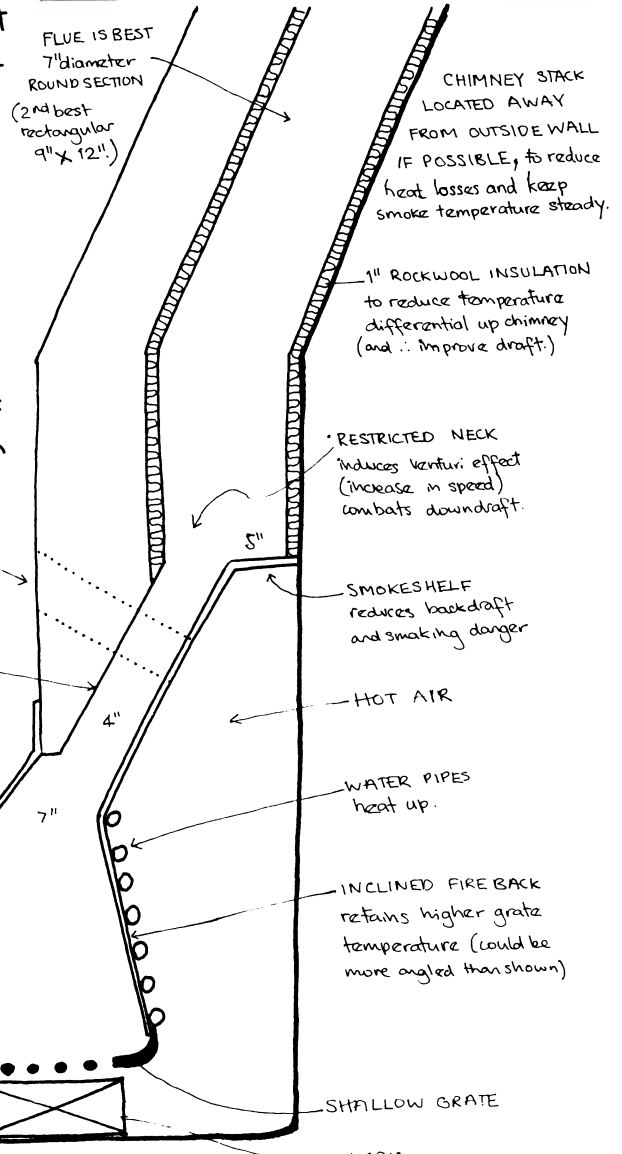 FLUE IS BEST
7" diameter
ROUND SECTION
(2nd best
rectangular
9" X 12".)
CHIMNEY STACK
LOCATED AWAY
FROM OUTSIDE WALL
IF POSSIBLE, to reduce
heat losses and keep
smoke temperature steady.
1" ROCKWOOL INSULATION
to reduce temperature
differential up chimney
(and ∴ improve draft.)
RESTRICTED NECK
induces venturi effect
(increase in speed)
combats downdraft.
5"
SMOKESHELF
reduces backdraft
and smoking danger
4"
HOT AIR
7"
WATER PIPES
heat up.
INCLINED FIRE BACK
retains higher grate
temperature (could be
more angled than shown)
SHALLOW GRATE